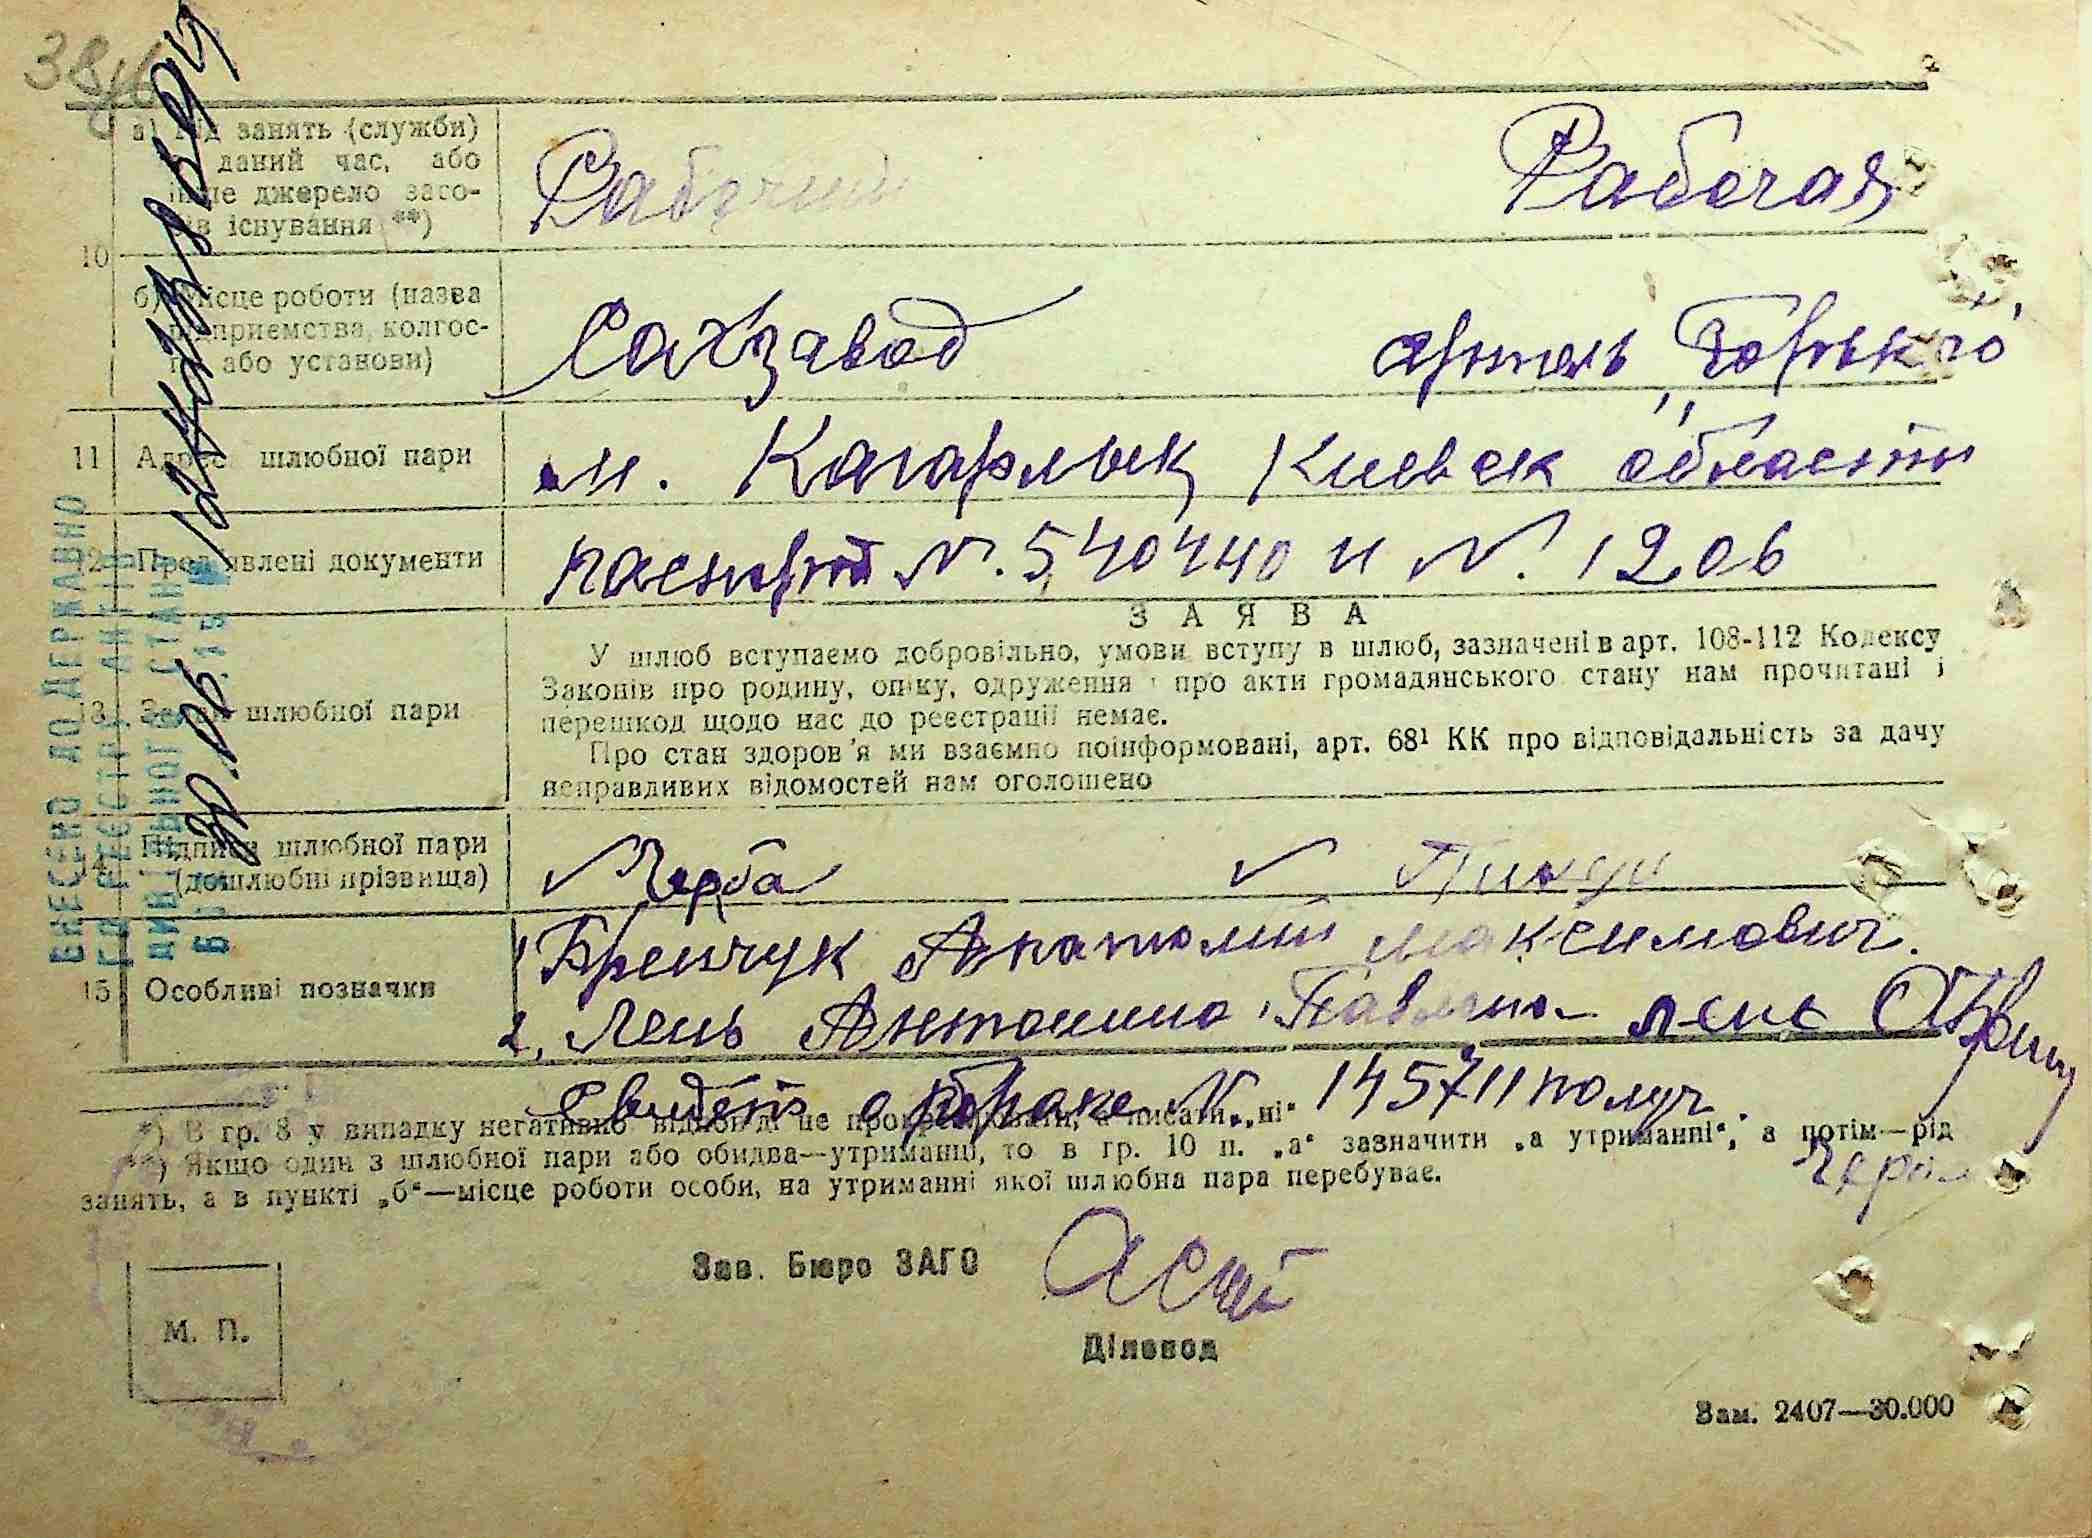 38
а) Рід занять (служби)
даний час, або
інше джерело засо-
бів існування **)
Рабочий
Рабочая
10
б) Місце роботи (назва
підприємства, колгос-
пу або установи)
Сахзавод
артель „Горького
11 Адрес шлюбної пари
м. Кагарлык Киевск области
12 Пред'явлені документи
паспорт N. 540440 и N. 1206
ЗАЯВА
13 Заява шлюбної пари
У шлюб вступаємо добровільно, умови вступу в шлюб, зазначені в арт. 108-112 Кодексу
Законів про родину, опіку, одруження і про акти громадянського стану нам прочитані і
перешкод щодо нас до реєстрації немає.
Про стан здоров'я ми взаємно поінформовані, арт. 68¹ КК про відповідальність за дачу
неправдивих відомостей нам оголошено
14 Підписи шлюбної пари
(дошлюбні прізвища)
15 Особливі позначки
1 Бренчук Анатолий Максимович.
2, Лень Антонина Павлина- лень
Свидет о браке N 145711 получ.
*) В гр. 8 у випадку негативної відповіді не прокреслювати, а писати „ні“
**) Якщо один з шлюбної пари або обидва—утриманці, то в гр. 10 п. „а“ зазначити „а утриманні“, а потім—рід
занять, а в пункті „б“—місце роботи особи, на утриманні якої шлюбна пара перебуває.
Зав. Бюро ЗАГС
Діловод
М. П.
Зам. 2407—30.000
ВНЕСЕНО ДО ДЕРЖАВНО
ГО РЕЄСТРУ АКТІВ
ЦИВІЛЬНОГО СТАНУ